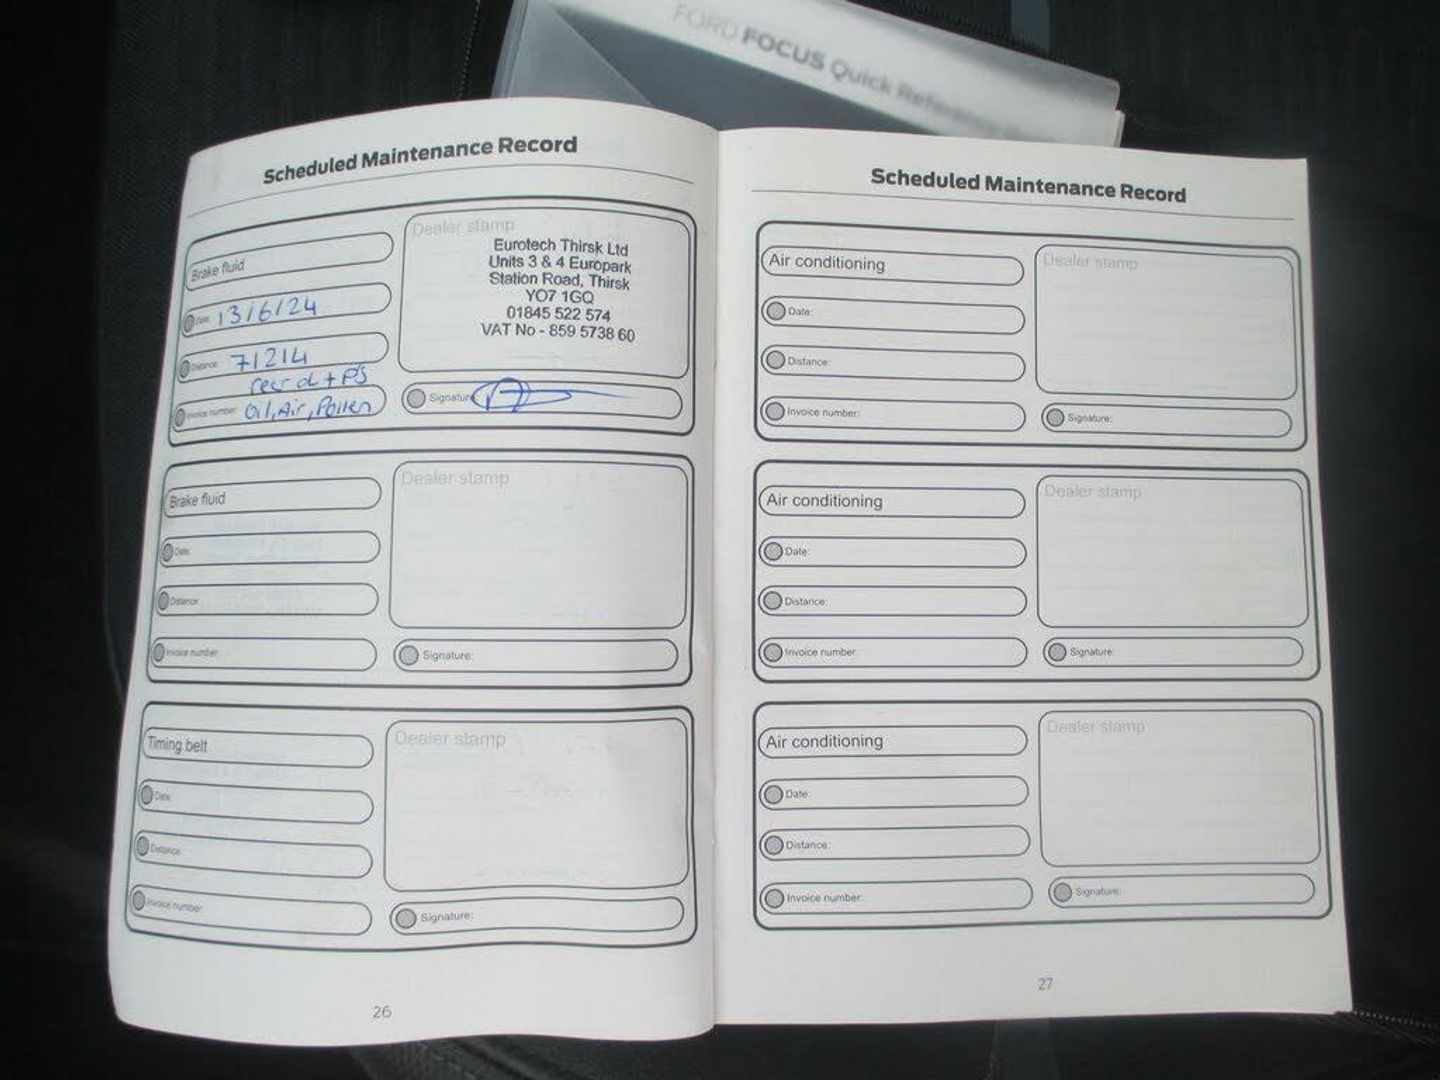 FORD FOCUS Quick Reference
Scheduled Maintenance Record
Brake fluid
Date: 13/6/24
Distance: 71214
rear d + P'S
Invoice number: Oil, Air, Pollen
Dealer stamp
Eurotech Thirsk Ltd
Units 3 & 4 Europark
Station Road, Thirsk
YO7 1GQ
01845 522 574
VAT No - 859 5738 60
Signature:
Brake fluid
Date:
Distance:
Invoice number:
Dealer stamp
Signature:
Timing belt
Date:
Distance:
Invoice number:
Dealer stamp
Signature:
26
Scheduled Maintenance Record
Air conditioning
Date:
Distance:
Invoice number:
Dealer stamp
Signature:
Air conditioning
Date:
Distance:
Invoice number:
Dealer stamp
Signature:
Air conditioning
Date:
Distance:
Invoice number:
Dealer stamp
Signature:
27